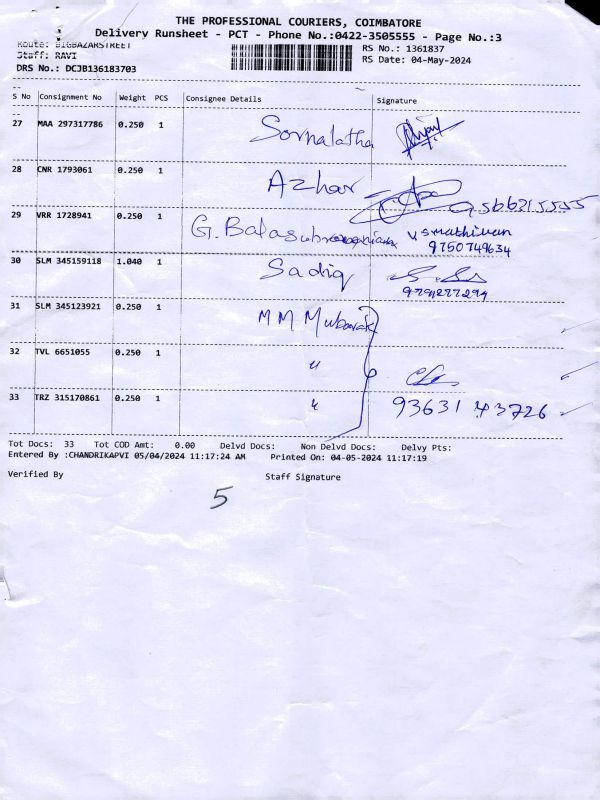 THE PROFESSIONAL COURIERS, COIMBATORE
Delivery Runsheet - PCT - Phone No.:0422-3505555 - Page No.:3
Route: BIGBAZARSTREET
RS No.: 1361837
Staff: RAVI
RS Date: 04-May-2024
DRS No.: DCJB136183703
S No Consignment No Weight PCS Consignee Details Signature
27 MAA 297317786 0.250 1 Sornalatha
28 CNR 1793061 0.250 1 Azhar
29 VRR 1728941 0.250 1 G. Balasubramaniam
9750749634
30 SLM 345159118 1.040 1 Sadiq
31 SLM 345123921 0.250 1 MM Mubarak
32 TVL 6651055 0.250 1 "
33 TRZ 315170861 0.250 1 " 93631 43726
Tot Docs: 33 Tot COD Amt: 0.00 Delvd Docs: Non Delvd Docs: Delvy Pts:
Entered By :CHANDRIKAPVI 05/04/2024 11:17:24 AM Printed On: 04-05-2024 11:17:19
Verified By Staff Signature
5